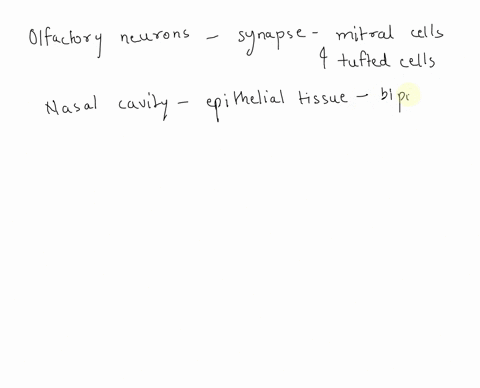 Olfactory neurons - synapse - mitral cells
& tufted cells
Nasal cavity - epithelial tissue -